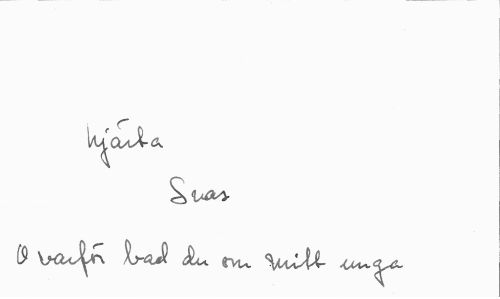 hjärta
Svas
O varför bad du om mitt unga